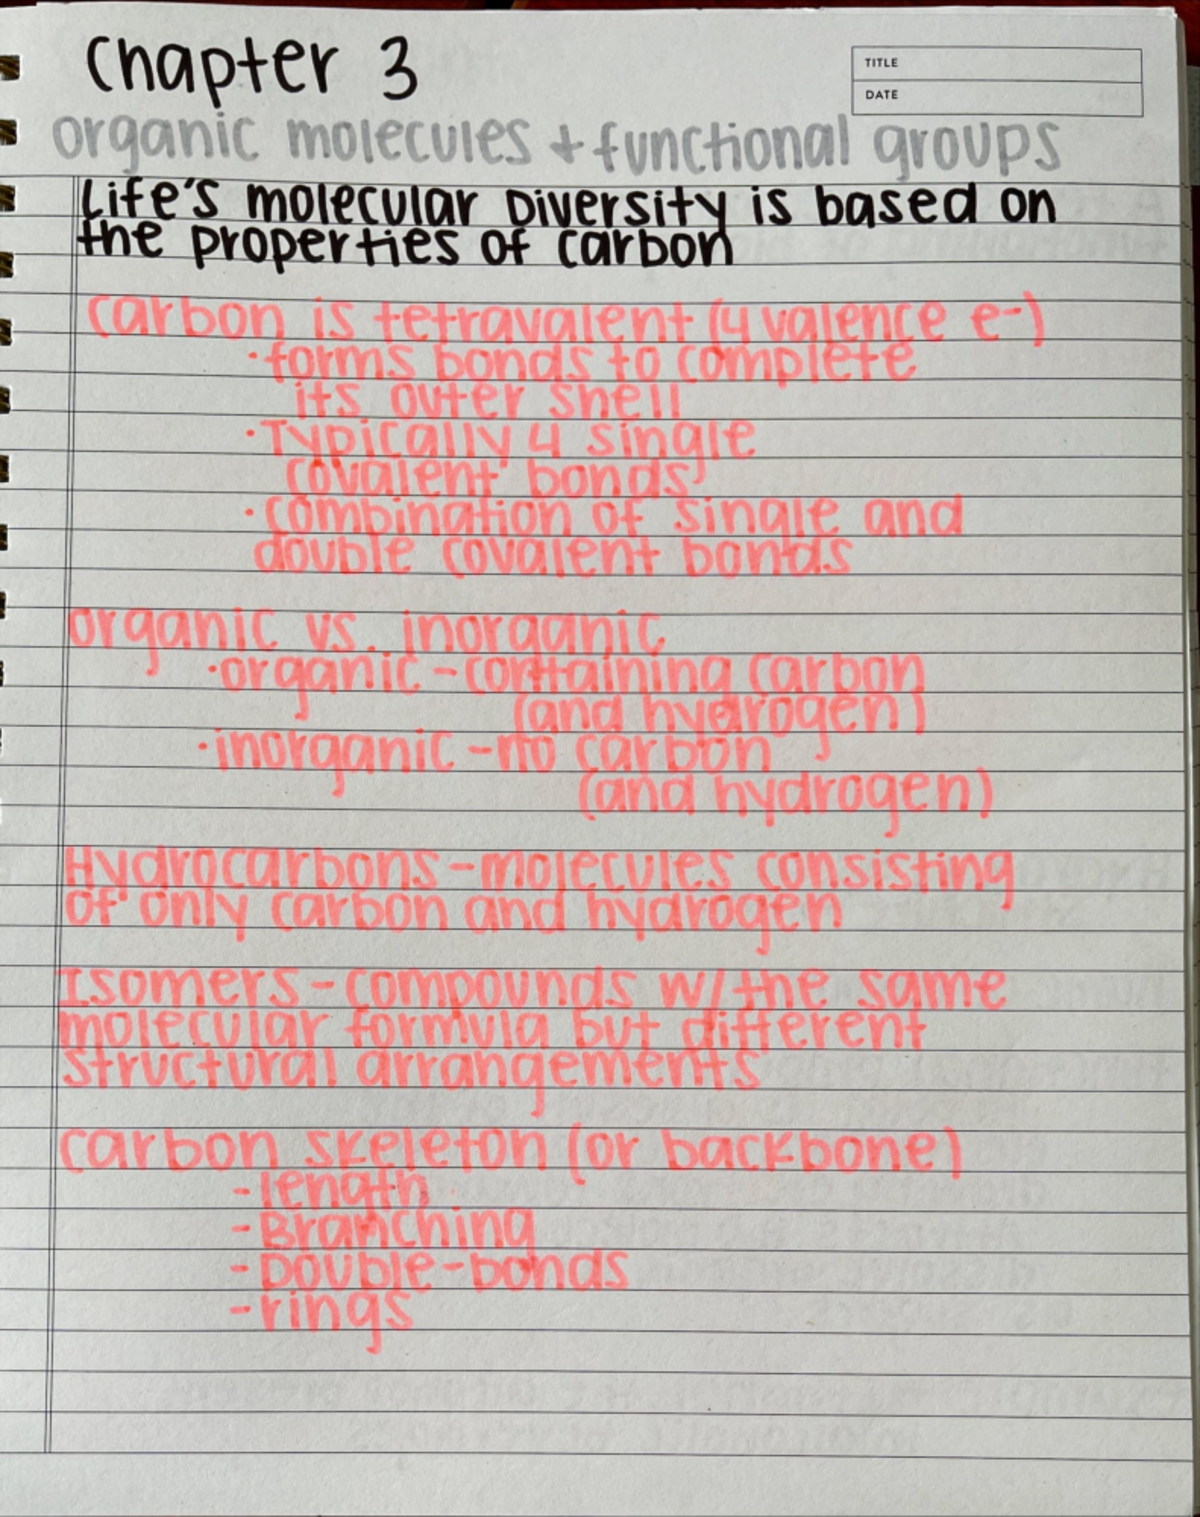 Chapter 3
TITLE
DATE
organic molecules + functional groups
Life's molecular Diversity is based on
the properties of carbon
carbon is tetravalent (4 valence e-)
·forms bonds to complete
its outer shell
·Typically 4 single
covalent bonds
·combination of single and
double covalent bonds
organic vs. inorganic
·organic - containing carbon
(and hydrogen)
·inorganic - no carbon
(and hydrogen)
Hydrocarbons - molecules consisting
of only carbon and hydrogen
Isomers - compounds w/ the same
molecular formula but different
structural arrangements
carbon skeleton (or backbone)
- length
- Branching
- Double-bonds
- rings